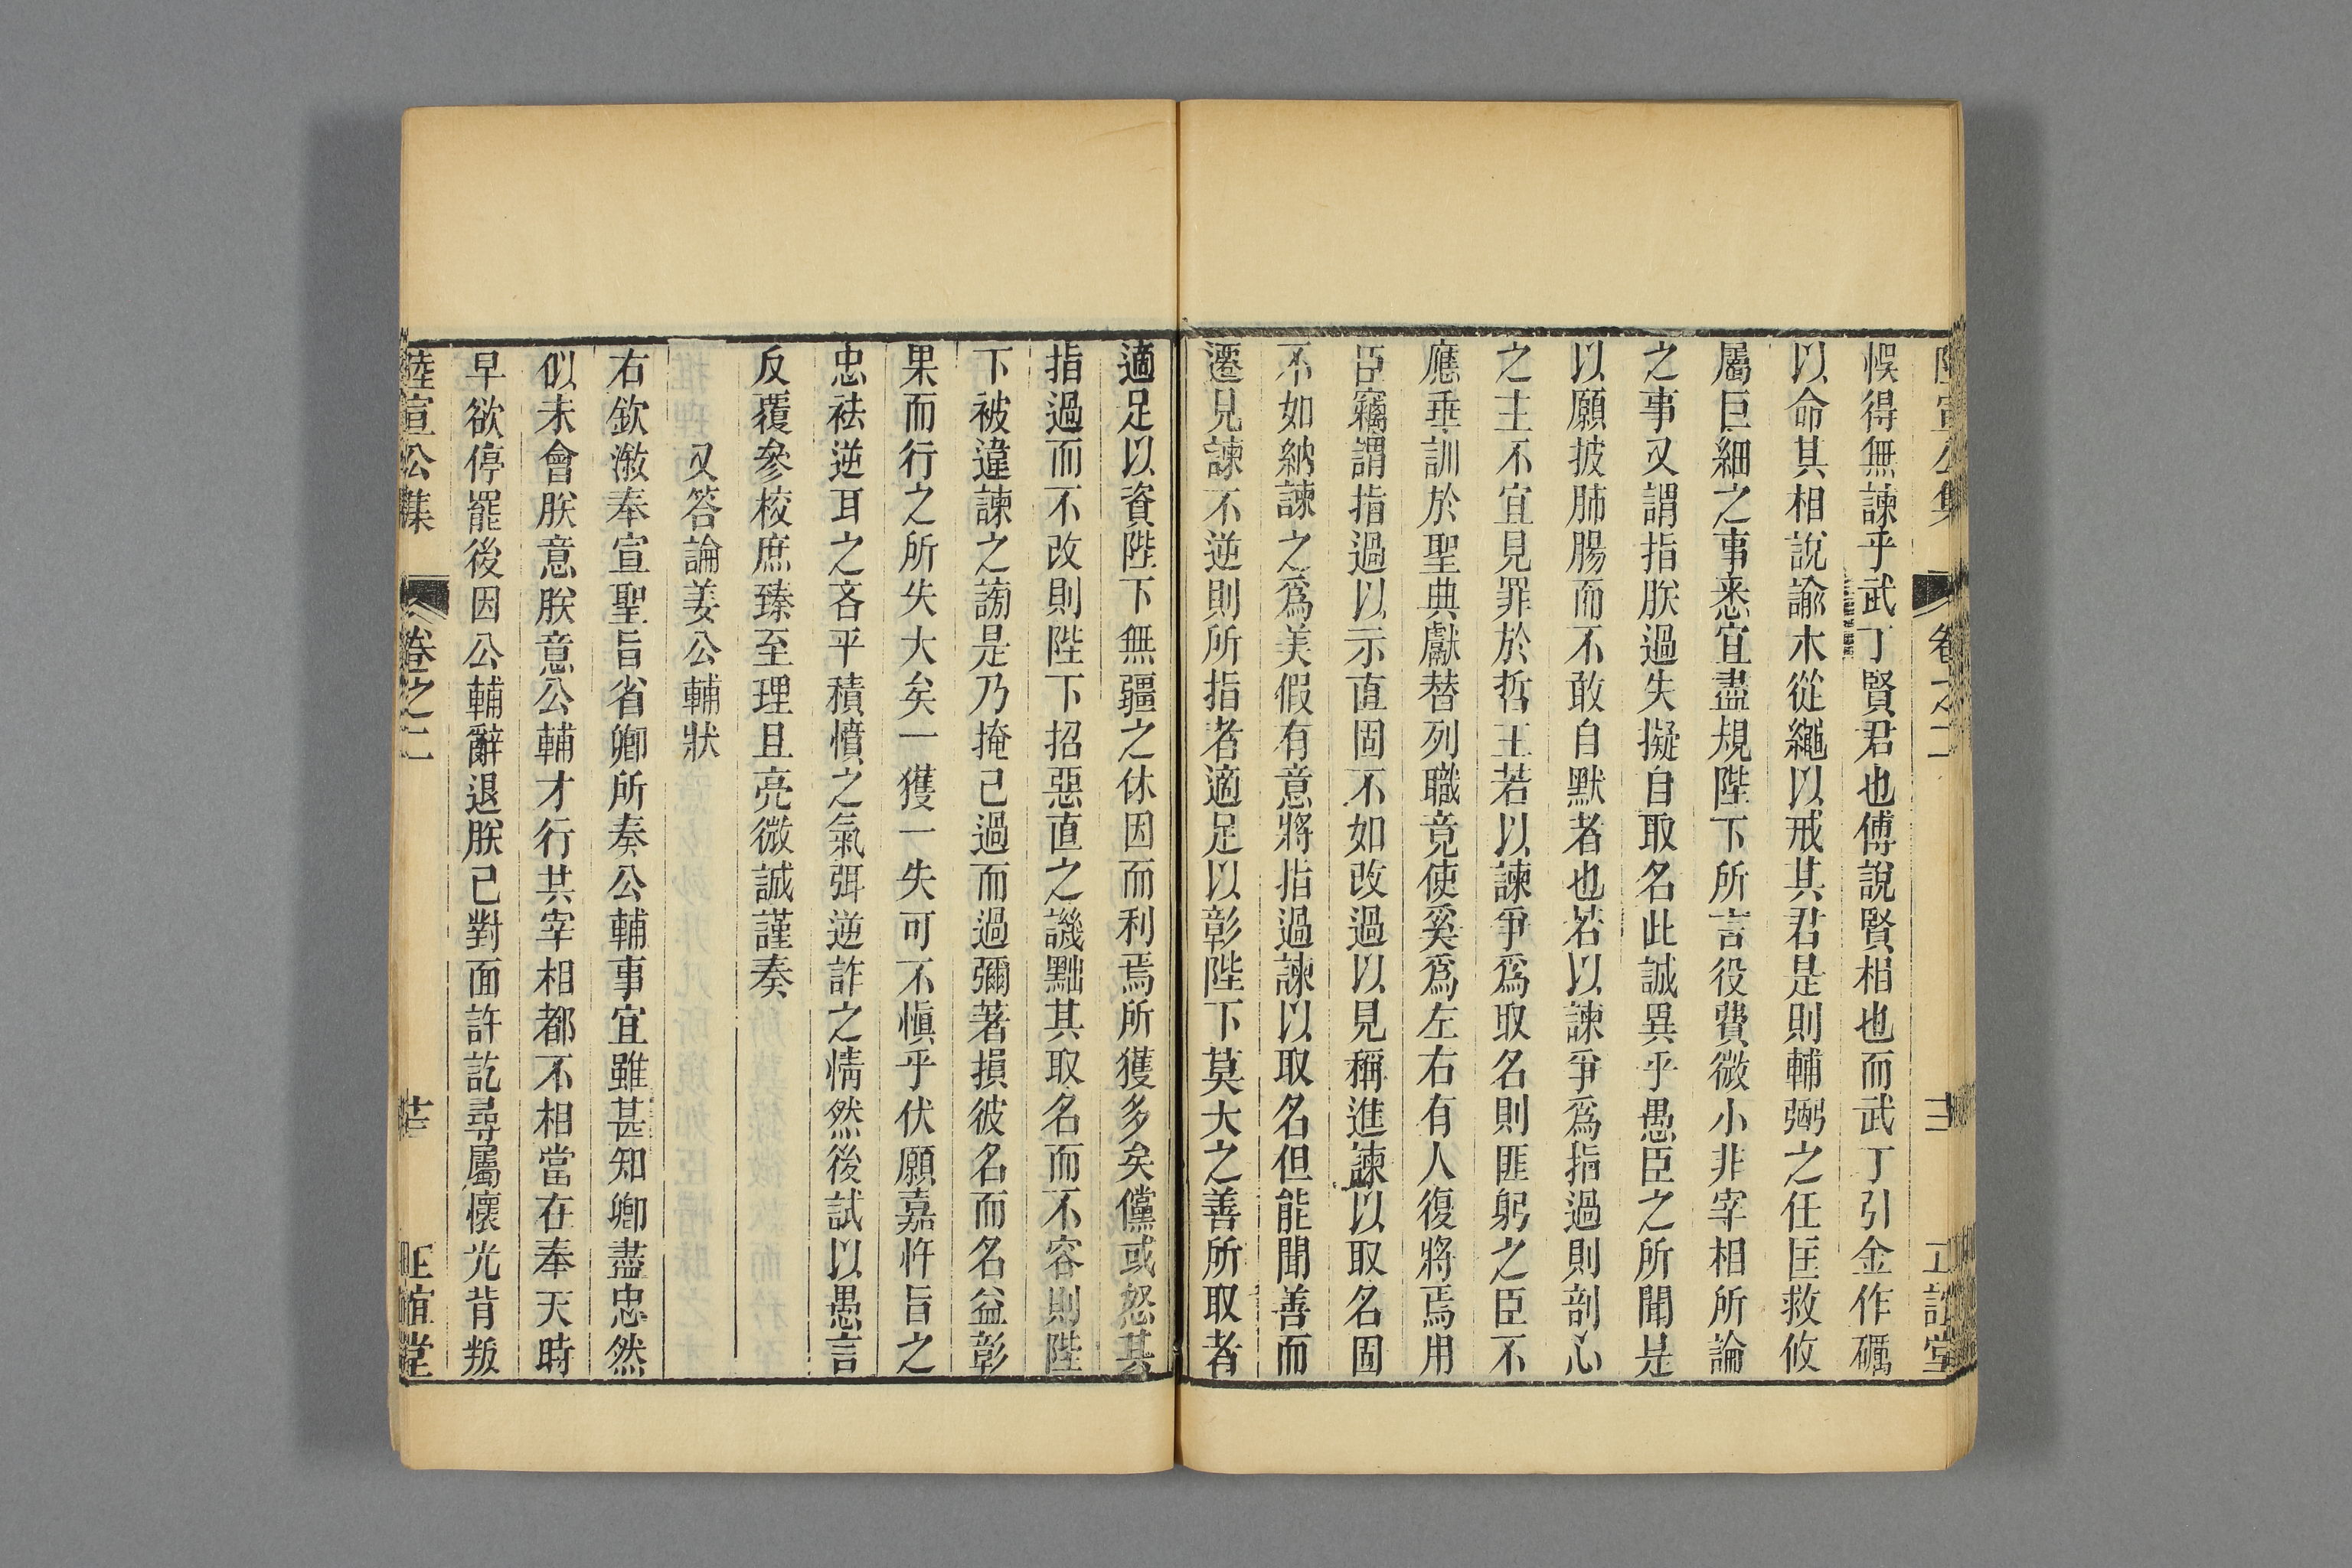 陸宣公集 卷之二 正誼堂
悞得無諫乎武丁賢君也傅說賢相也而武丁引金作礪
以命其相說諭木從繩以戒其君是則輔弼之任匡救攸
屬巨細之事悉宜盡規陛下所言役費微小非宰相所論
之事又謂指朕過失擬自取名此誠異乎愚臣之所聞是
以願披肺腸而不敢自默者也若以諫爭爲指過則剖心
之主不宜見罪於哲王若以諫爭爲取名則匪躬之臣不
應垂訓於聖典獻替列職竟使奚爲左右有人復將焉用
臣竊謂指過以示直固不如改過以見稱進諫以取名固
不如納諫之爲美假有意將指過諫以取名但能聞善而
遷見諫不逆則所指者適足以彰陛下莫大之善所取者
適足以資陛下無疆之休因而利焉所獲多矣儻或怒其
指過而不改則陛下招惡直之譏黜其取名而不容則陛
下被違諫之謗是乃掩己過而過彌著損彼名而名益彰
果而行之所失大矣一獲一失可不愼乎伏願嘉忤旨之
忠袪逆耳之吝平積憤之氣弭逆詐之情然後試以愚言
反覆參校庶臻至理且亮微誠謹奏
又答論姜公輔狀
右欽漵奉宣聖旨省卿所奏公輔事宜雖甚知卿盡忠然
似未會朕意朕意公輔才行共宰相都不相當在奉天時
早欲停罷後因公輔辭退朕已對面許訖尋屬懷光背叛
陸宣公集 卷之二 正誼堂